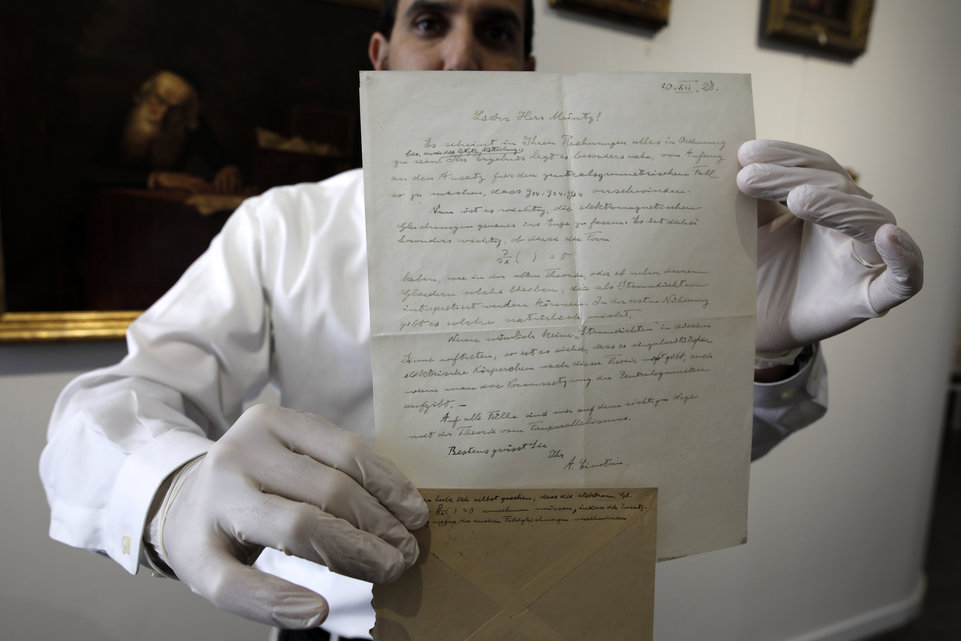 10. XII. 28.
Lieber Herr Müntz!
Es scheint in Ihren Rechnungen alles in Ordnung
bes. auch die letzte Mitteilung.
zu sein. Ihr Ergebnis legt es besonders nahe, von Anfang
an den Ansatz für den zentralsymmetrischen Fall
so zu machen, dass g14, g24, g34 verschwinden.
Nun ist es wichtig, die elektromagnetischen
Gleichungen genauer ins Auge zu fassen. Es ist dabei
besonders wichtig, ob diese die Form
∂/∂x ( ) = 0
haben, wie in der alten Theorie, oder ob neben diesen
Gliedern solche bleiben, die als Stromdichten
interpretiert werden können. In der ersten Näherung
gibt es solche natürlich nicht.
Wenn nämlich keine „Stromdichten" in diesem
Sinne auftreten, so ist es sicher, dass es singularitätsfreie
elektrische Körperchen nach dieser Theorie nicht gibt, auch
wenn man die Voraussetzung der Zentralsymmetrie
aufgibt. —
Auf alle Fälle sind wir auf dem richtigen Wege
mit der Theorie vom Fernparallelismus.
Bestens grüsst Sie
Ihr
A. Einstein.
habe selbst gesehen, dass die elektrom. Gl.
( ) = 0 annehmen müssen, indem die
der andern Feldgleichungen verschwinden